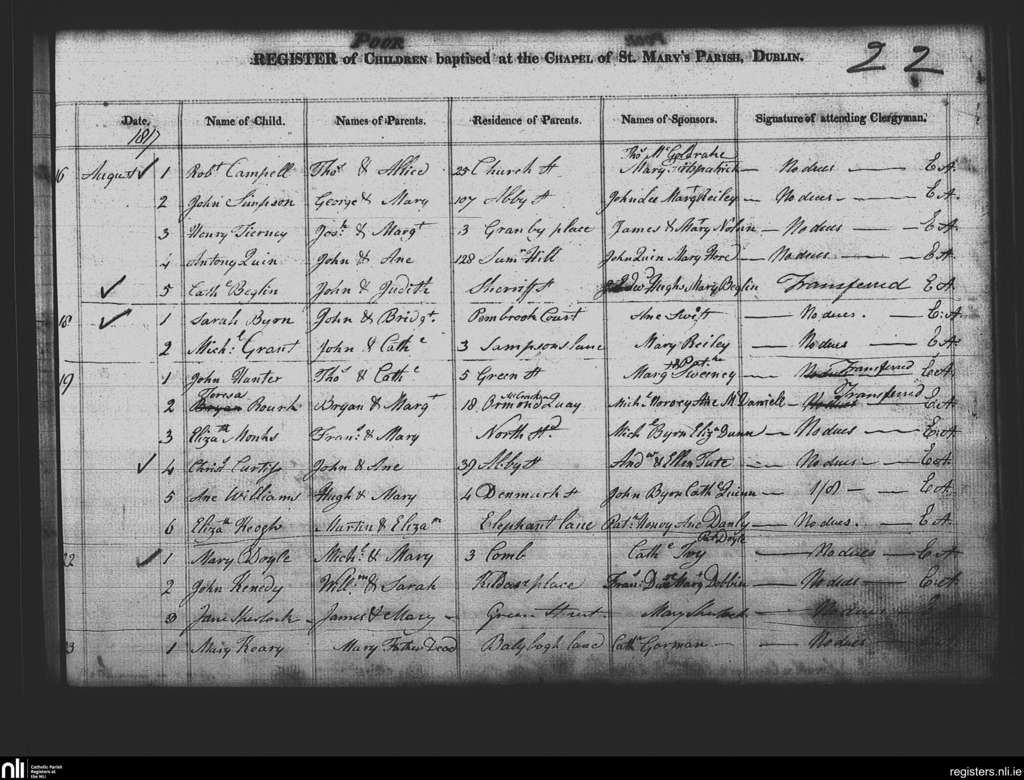 POOR
REGISTER of CHILDREN baptised at the CHAPEL of ST. MARY'S PARISH, DUBLIN.
22
Date. Name of Child. Names of Parents. Residence of Parents. Names of Sponsors. Signature of attending Clergyman.
1817
Thos McGoldrake
16 August 1 Robt Campell Thos & Allice 25 Church St Mary Fitzpatrick — No dues — E A.
2 John Simpson George & Mary 107 Abby St John Lee Margt Reiley — No dues — E A.
3 Henry Tierney Josh & Margt 3 Granby place James & Mary Nolan — No dues — E A.
4 Antony Quin John & Ane 128 Sumr Hill John Quin Mary Hore — No dues — E A.
5 Cathe Beglin John & Judith Sherriff St Edwd Hughs Mary Beglin Transferred E A
18 1 Sarah Byrn John & Bridgt Pembrook Court Ane Swift — No dues. — E. A
2 Michl Grant John & Cathe 3 Sampsons lane Mary Reiley — No dues — E A.
19 1 John Hanter Thos & Cathe 5 Green St Margt Sweeney — No dues Transferred E A.
Teresa
2 Bryan Rourk Bryan & Margt 18 Ormond Quay Michl Ane McDaniell — No dues Transferred E A.
3 Elizath Monks Frans & Mary North St Michl Byrn Elizth Dunn — No dues — E. A.
4 Christ Curtiss John & Ane 39 Abby St Andw & Ellen Tute — No dues — E A.
5 Ane Williams Hugh & Mary 4 Denmark St John Byrn Cathe Quinn — 1/8 — E A.
6 Elizath Keogh Martin & Elizath Elephant lane Patk Ane Danly — No dues. — E A.
Patk Doyle
22 1 Mary Doyle Michl & Mary 3 Comb Cathe Ivy — No dues — E A
2 John Kenedy Willm & Sarah Kildare place Frans Mary Dobbin — No dues — E. A
3 Jane Sherlock James & Mary — Green Street Mary Sherlock — No dues
23 1 Mary Roary Mary Father Dead Balybogh lane Cathe Gorman — No dues
nli Catholic Parish
Registers at
the NLI
registers.nli.ie